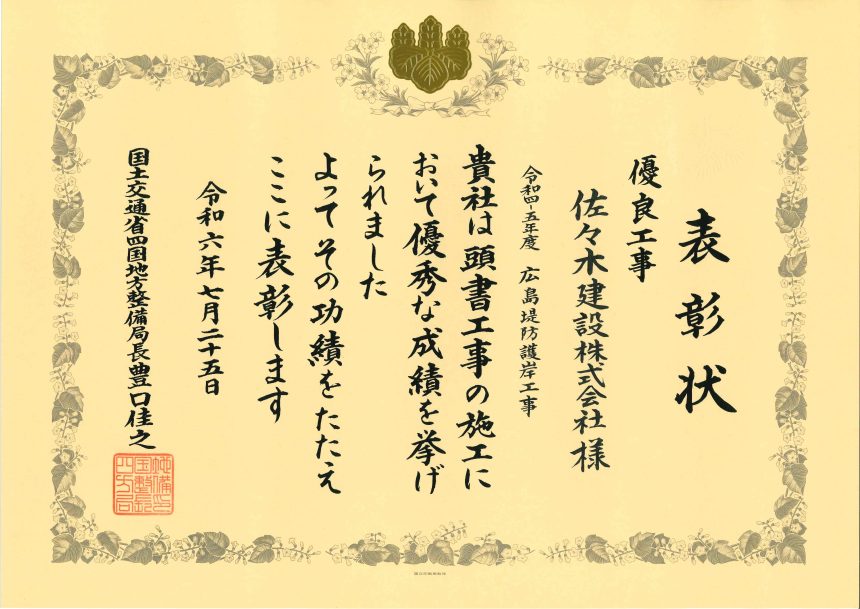 表彰状
優良工事
佐々木建設株式会社様
令和四-五年度 広島堤防護岸工事
貴社は頭書工事の施工に
おいて優秀な成績を挙げ
られました
よってその功績をたたえ
ここに表彰します
令和六年七月二十五日
国土交通省四国地方整備局長豊口佳之